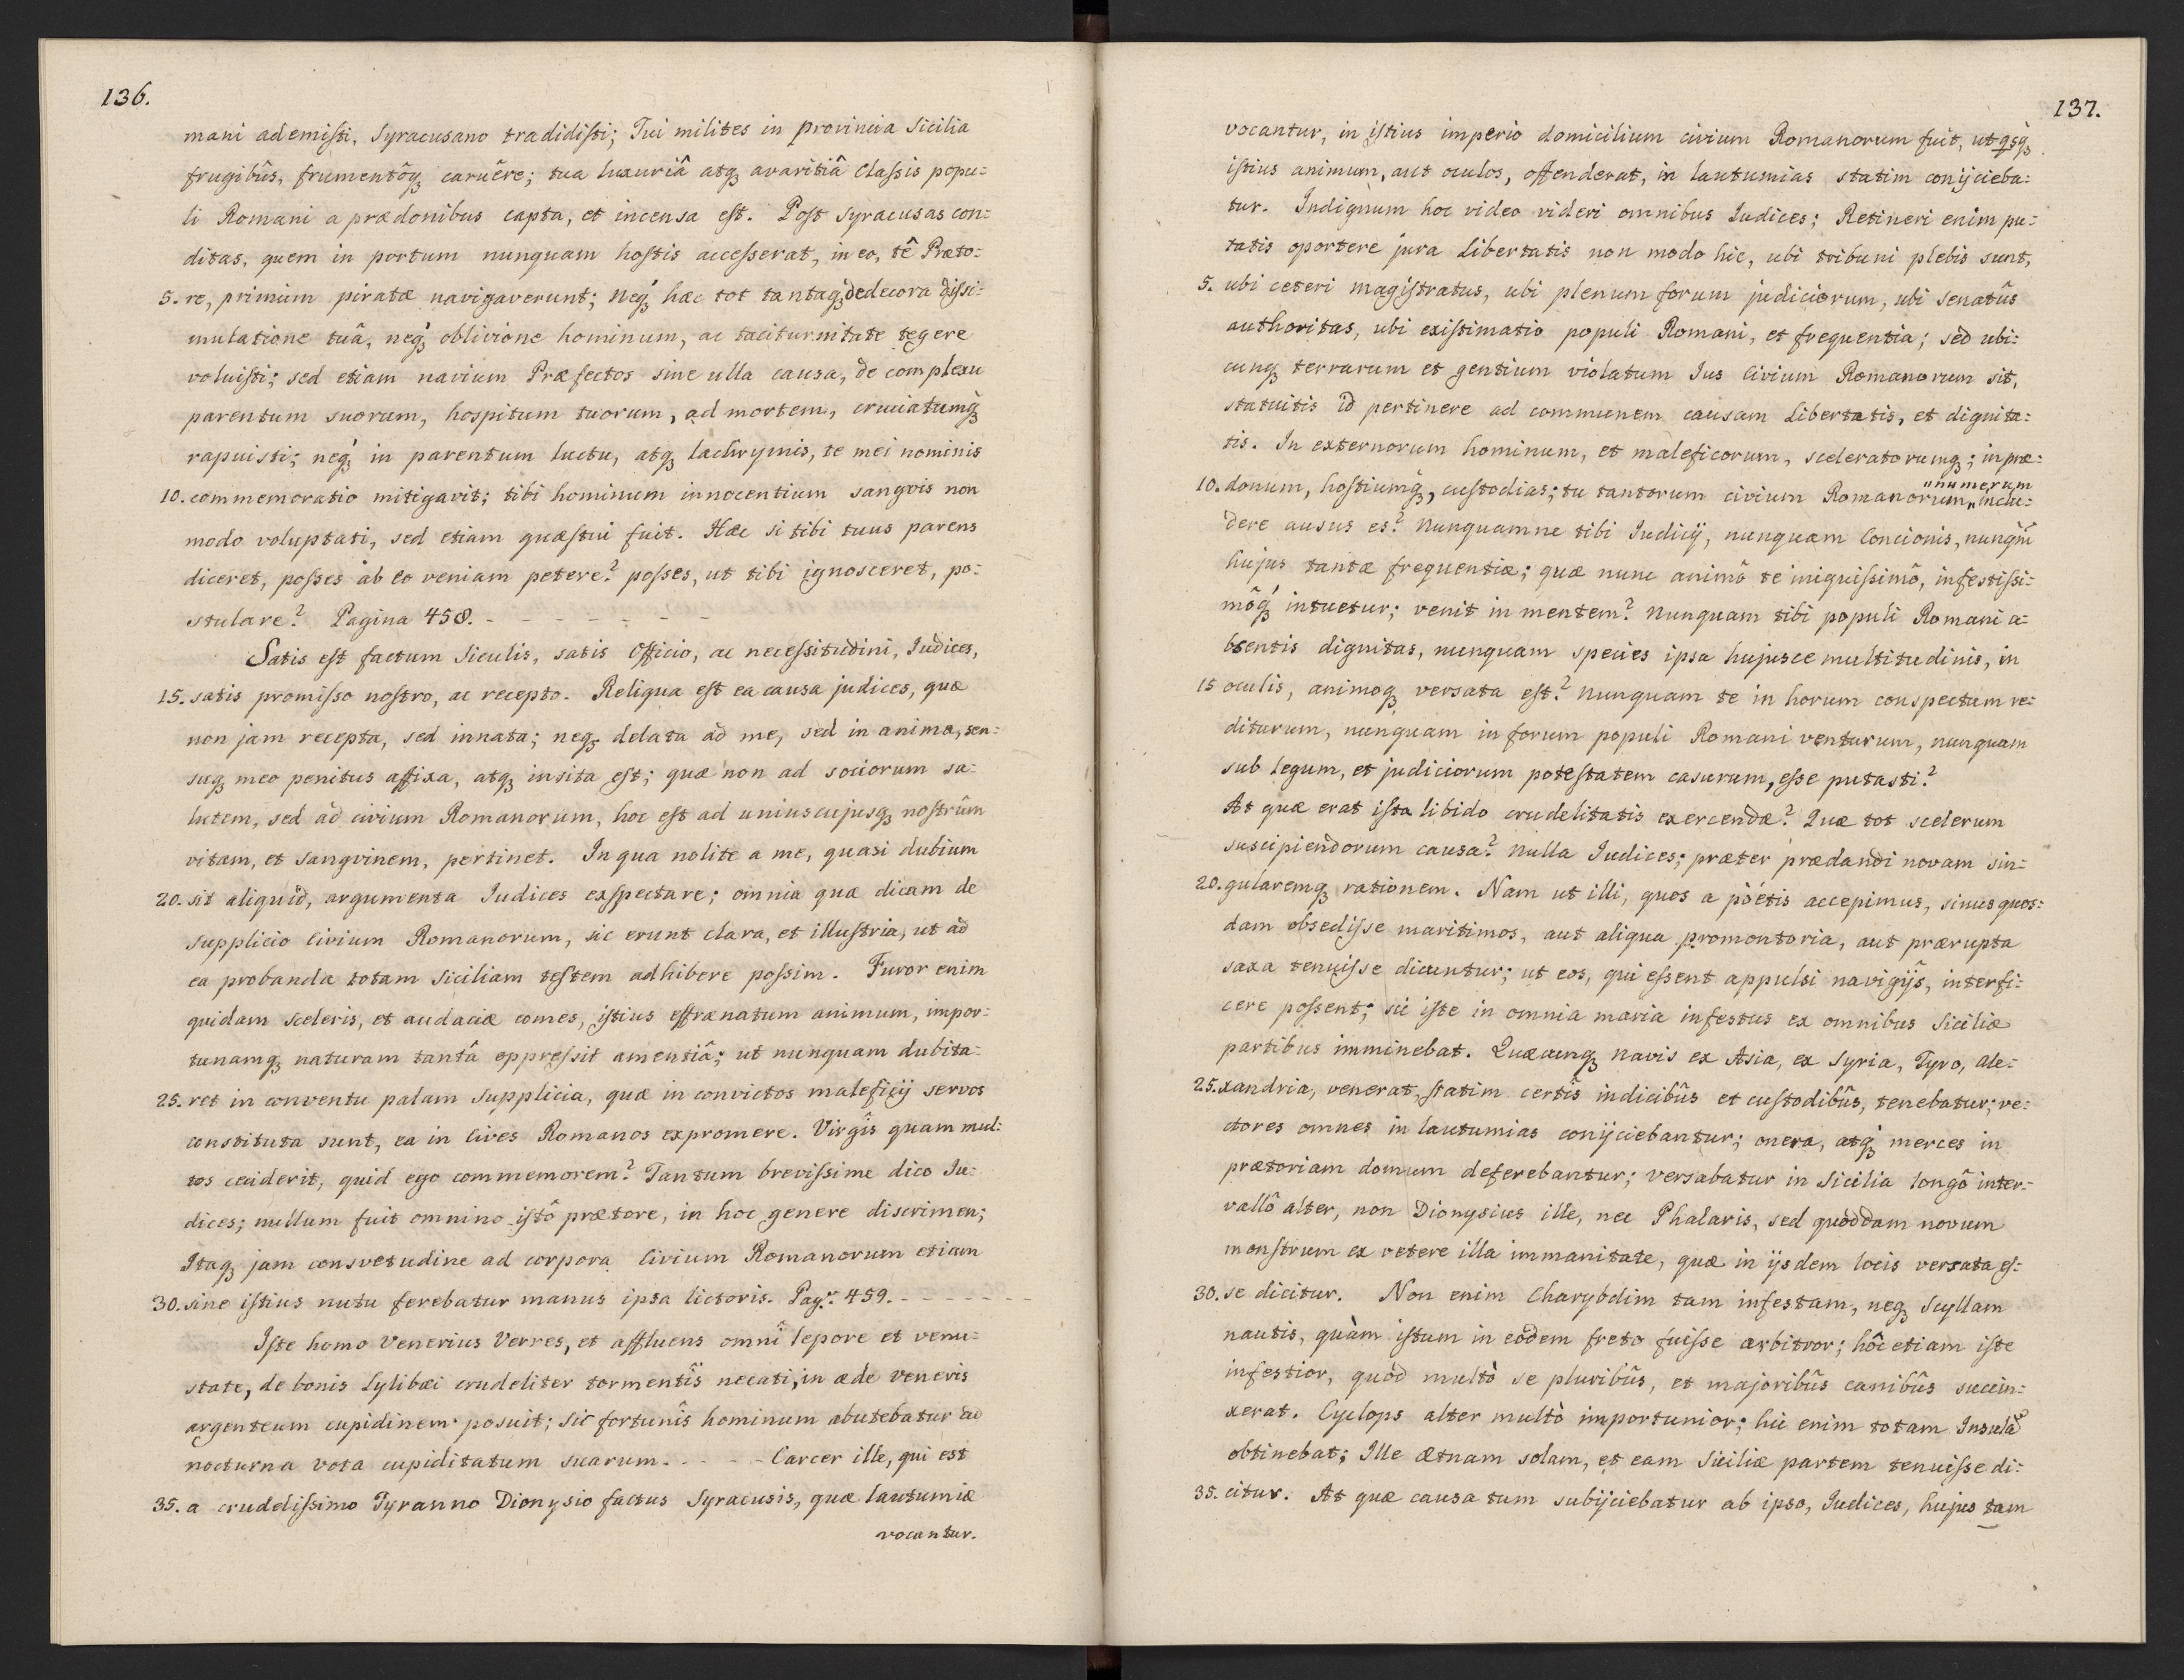 136.
mani ademisti, Syracusano tradidisti; Tui milites in provincia Sicilia
frugibûs, frumentôq̃ caruêre; tua luxuriâ atq̃ avaritiâ Classis popu=
li Romani a prædonibus capta, et incensa est. Post Syracusas con=
ditas, quem in portum nunquam hostis accesserat, in eo, tê Præto=
5. re, primùm piratæ navigaverunt; neq̃ hæc tot tantaq̃ dedecora dissi=
mulatione tuâ, neq̃ oblivione hominum, ac taciturnitate tegere
voluisti; sed etiam navium Præfectos sine ulla causa, de complexu
parentum suorum, hospitum tuorum, ad mortem, cruciatumq̃
rapuisti; neq̃ in parentum luctu, atq̃ lachrymis, te mei nominis
10. commemoratio mitigavit; tibi hominum innocentium sangvis non
modo voluptati, sed etiam quæstui fuit. Hæc si tibi tuus parens
diceret, posses ab eo veniam petere? posses, ut tibi ignosceret, po=
stulare? Pagina 458. - - - - - - -
Satis est factum Siculis, satis Officio, ac necessitudini, Iudices,
15. satis promisso nostro, ac recepto. Reliqua est ea causa judices, quæ
non jam recepta, sed innata; neq̃ delata ad me, sed in animo, sen=
suq̃ meo penitus affixa, atq̃ insita est; quæ non ad sociorum sa=
lutem, sed ad civium Romanorum, hoc est ad uniuscujusq̃ nostrûm
vitam, et sangvinem, pertinet. In qua nolite a me, quasi dubium
20. sit aliquid, argumenta Iudices exspectare; omnia quæ dicam de
supplicio Civium Romanorum, sic erunt clara, et illustria, ut ad
ea probanda totam Siciliam testem adhibere possim. Furor enim
quidam sceleris, et audaciæ comes, istius effrænatum animum, impor=
tunamq̃ naturam tantâ oppressit amentiâ; ut nunquam dubita=
25. ret in conventu palam supplicia, quæ in convictos maleficij servos
constituta sunt, ea in Cives Romanos expromere. Virgîs quam mul=
tos ceciderit, quid ego commemorem? Tantum brevissime dico Iu=
dices; nullum fuit omnino istô prætore, in hoc genere discrimen;
Itaq̃ jam consvetudine ad corpora Civium Romanorum etiam
30. sine istius nutu ferebatur manus ipsa lictoris. Pag: 459. - - - - - - -
Iste homo Venerius Verres, et affluens omni lepore et venu=
state, de bonis Lylibæi crudeliter tormentîs necati, in æde Veneris
argenteum cupidinem posuit; sic fortunîs hominum abutebatur ad
nocturna vota cupiditatum suarum. - - - - Carcer ille, qui est
35. a crudelissimo Tyranno Dionysio factus Syracusis, quæ lautumiæ
vocantur.
137.
vocantur, in istius imperio domicilium civium Romanorum fuit, ut qsq̃
istius animum, aut oculos, offenderat, in lautumias statim conijcieba=
tur. Indignum hoc video videri omnibus Iudices; Retineri enim pu=
tatis oportere jura Libertatis non modo hic, ubi tribuni plebis sunt,
5. ubi ceteri magistratus, ubi plenum forum judiciorum, ubi Senatûs
authoritas, ubi existimatio populi Romani, et frequentia; sed ubi=
cunq̃ terrarum et gentium violatum Ius Civium Romanorum sit,
statuitis id pertinere ad communem causam Libertatis, et dignita=
tis. In externorum hominum, et maleficorum, sceleratorumq̃; in præ=
10. donum, hostiumq̃, custodias; tu tantorum civium Romanorum „numerum inclu=
dere ausus es? Nunquamne tibi Iudicij, nunquam Concionis, nunq̃m
hujus tantæ frequentiæ; quæ nunc animô te iniquissimô, infestissi=
môq̃ intuetur; venit in mentem? Nunquam tibi populi Romani a=
bsentis dignitas, nunquam species ipsa hujusce multitudinis, in
15 oculis, animoq̃ versata est? Nunquam te in horum conspectum re=
diturum, nunquam in forum populi Romani venturum, nunquam
sub legum, et judiciorum potestatem casurum, esse putasti?
At quæ erat ista libido crudelitatis exercendæ? Quæ tot scelerum
suscipiendorum causa? Nulla Iudices; præter prædandi novam sin=
20. gularemq̃ rationem. Nam ut illi, quos a pöétis accepimus, sinus quos=
dam obsedisse maritimos, aut aliqua promontoria, aut prærupta
saxa tenuisse dicuntur; ut eos, qui essent appulsi navigijs, interfi=
cere possent; sic iste in omnia maria infestus ex omnibus Siciliæ
partibus imminebat. Quæcunq̃ navis ex Asia, ex Syria, Tyro, Ale=
25. xandria, venerat, statim certîs indicibûs et custodibûs, tenebatur; ve=
ctores omnes in lautumias conijciebantur; onera, atq̃ merces in
prætoriam domum deferebantur; versabatur in Sicilia longô inter=
vallô alter, non Dionysius ille, nec Phalaris, sed quoddam novum
monstrum ex vetere illa immanitate, quæ in ijsdem locis versata es=
30. se dicitur. Non enim Charybdim tam infestam, neq̃ Scyllam
nautis, quàm istum in eodem freto fuisse arbitror; hôc etiam iste
infestior, quòd multò se pluribûs, et majoribûs canibûs succin=
xerat. Cyclops alter multò importunior; hic enim totam Insulã
obtinebat; Ille Ætnam solam, et eam Siciliæ partem tenuisse di=
35. citur. At quæ causa tum subijciebatur ab ipso, Iudices, hujus tam